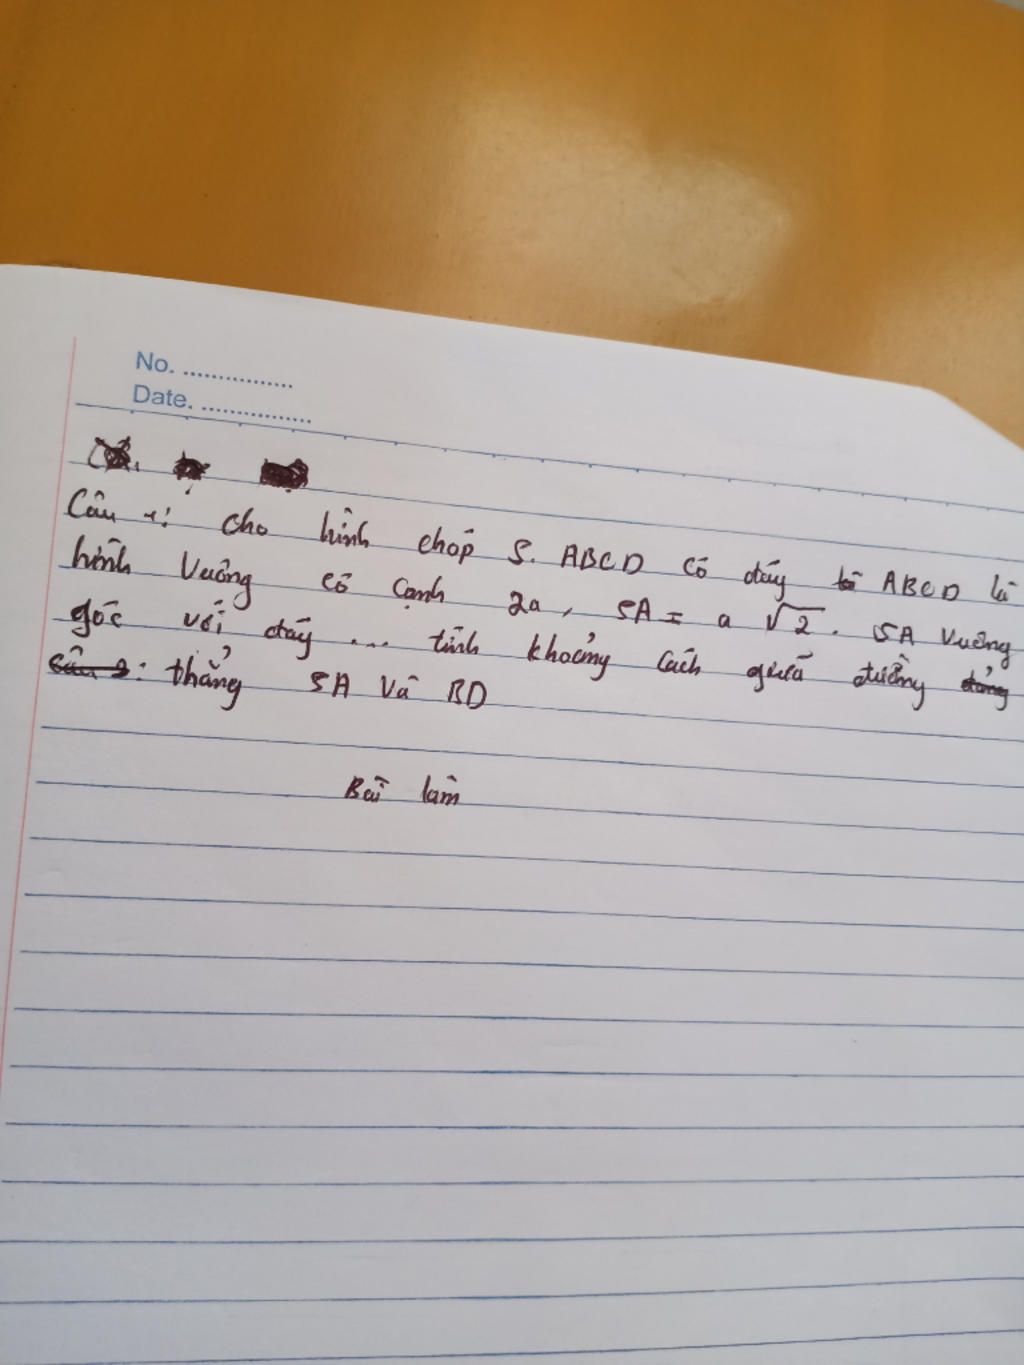 No. ...............
Date. ...............
Câu 1: cho hình chóp S. ABCD có đáy ABCD là
hình vuông có cạnh 2a, SA = a √2. SA vuông
góc với đáy ... tính khoảng cách giữa đường
thẳng SA và BD
Bài làm